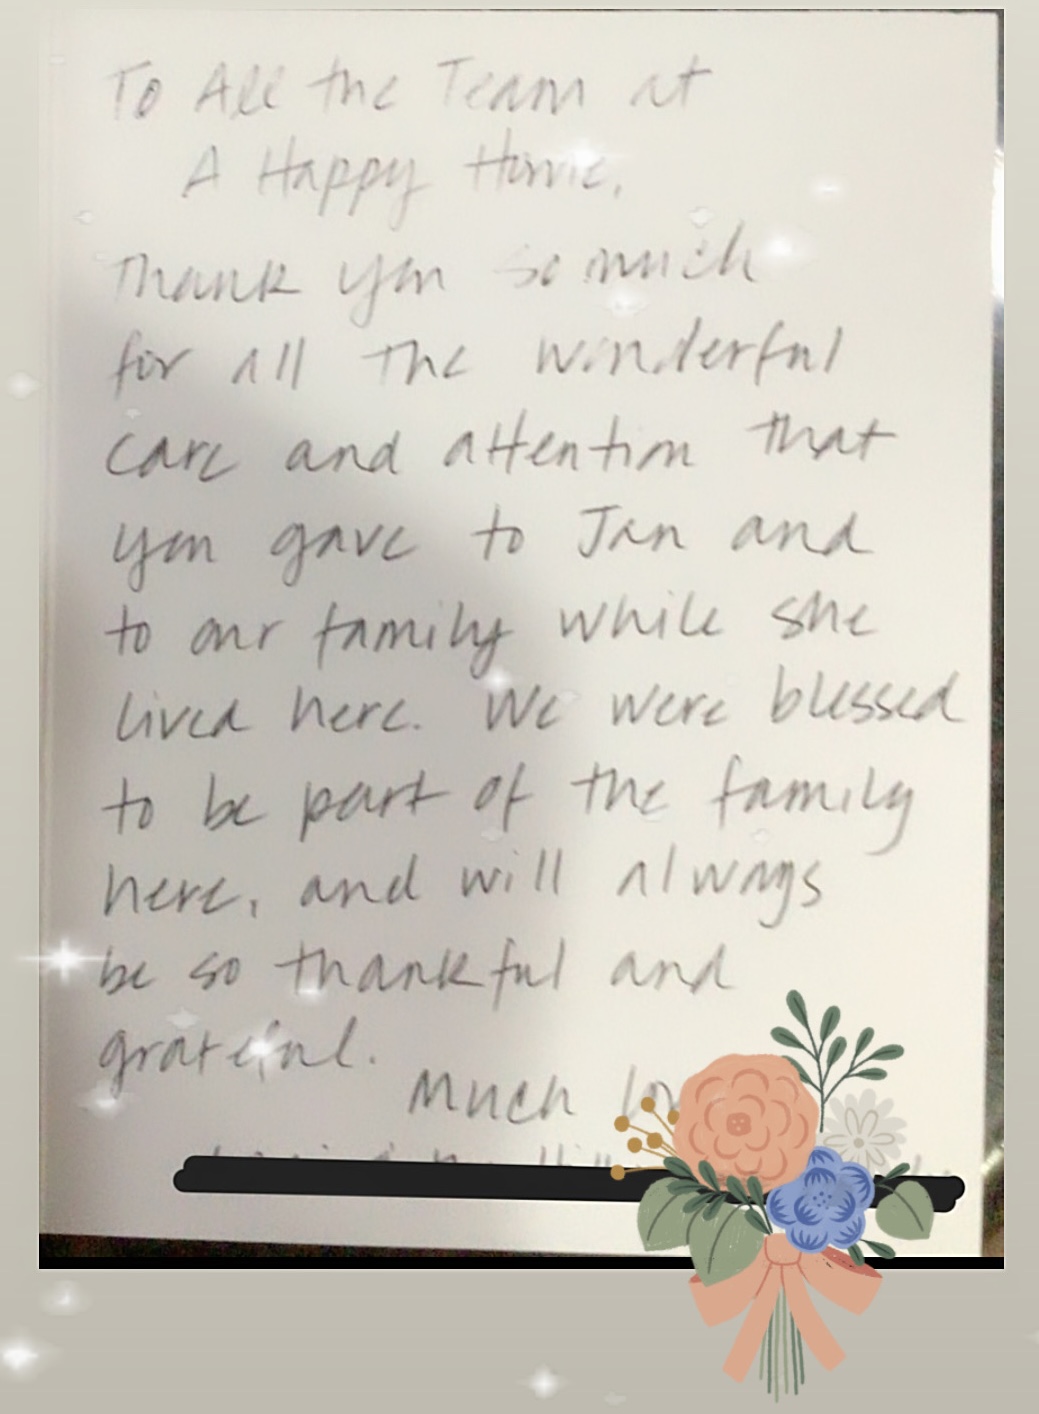 To All the Team at
A Happy Home,
Thank you so much
for all the wonderful
care and attention that
you gave to Jan and
to our family while she
lived here. We were blessed
to be part of the family
here, and will always
be so thankful and
grateful.
Much